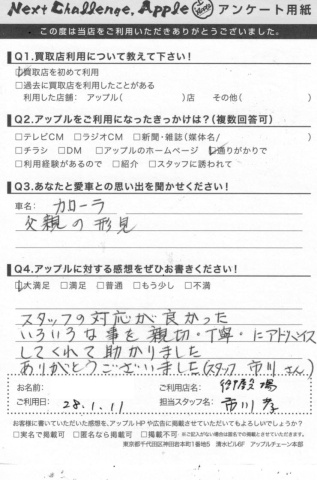 Next Challenge. Apple アンケート用紙
この度は当店をご利用いただきありがとうございました。
Q1.買取店利用について教えて下さい!
☑買取店を初めて利用
□過去に買取店を利用したことがある
利用した店舗: アップル( )店 その他( )
Q2.アップルをご利用になったきっかけは?(複数回答可)
□テレビCM □ラジオCM □新聞・雑誌(媒体名/ )
□チラシ □DM □アップルのホームページ ☑通りがかりで
□利用経験があるので □紹介 □スタッフに誘われて
Q3.あなたと愛車との思い出を聞かせください!
車名: カローラ
父親の形見
Q4.アップルに対する感想をぜひお書きください!
☑大満足 □満足 □普通 □もう少し □不満
スタッフの対応が良かった
いろいろな事を親切・丁寧・にアドバイス
してくれて助かりました
ありがとうございました(スタッフ 市川さん)
お名前: ご利用店名:
ご利用日: 28.1.11 担当スタッフ名: 市川
お客様に書いていただいた感想を、アップルHPや広告に掲載させていただいてもよろしいでしょうか?
□実名で掲載可 □匿名なら掲載可 □掲載不可 ※ご記入がない場合は匿名での掲載とさせていただきます。
東京都千代田区神田岩本町1番地5 清水ビル6F アップルチェーン本部